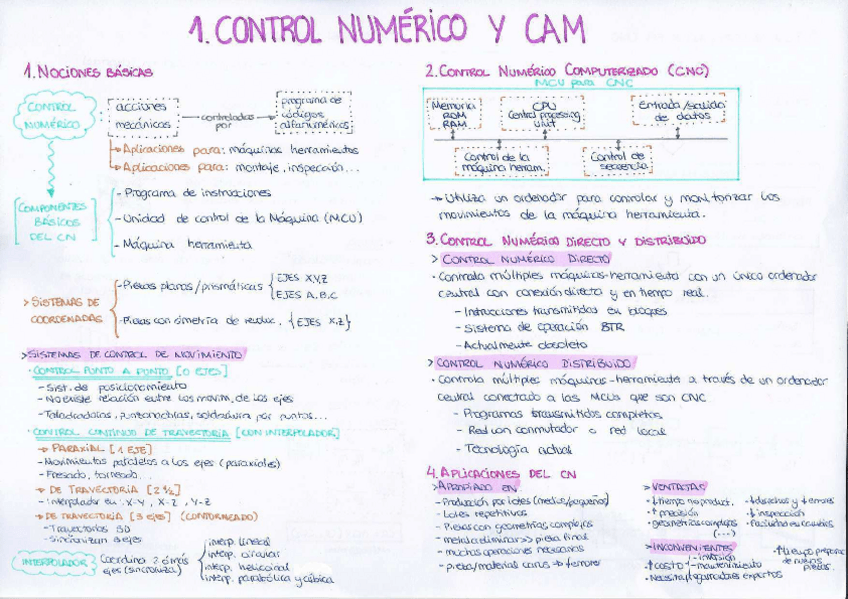 1. CONTROL NUMÉRICO Y CAM
1. NOCIONES BÁSICAS
CONTROL
NUMÉRICO
acciones
mecánicas
controladas
por
programa de
códigos
alfanuméricos
Aplicaciones para: máquinas herramientas
Aplicaciones para: montaje, inspección...
COMPONENTES
BÁSICOS
DEL CN
- Programa de instrucciones
- Unidad de control de la Máquina (MCU)
- Máquina herramienta
> SISTEMAS DE
COORDENADAS
- Piezas planas/prismáticas
EJES X,Y,Z
EJES A,B,C
- Piezas con simetría de revoluc. { EJES X,Z }
> SISTEMAS DE CONTROL DE MOVIMIENTO
· CONTROL PUNTO A PUNTO [0 EJES]
- Sist. de posicionamiento
- No existe relación entre los movim. de los ejes
- Taladradoras, punzonadoras, soldadura por puntos...
· CONTROL CONTINUO DE TRAYECTORIA [CON INTERPOLADOR]
PARAXIAL [1 EJE]
- Movimientos paralelos a los ejes (paraxiales)
- Fresado, torneado...
DE TRAYECTORIA [2 ½]
- Interpolador en: X-Y, X-Z, Y-Z
DE TRAYECTORIA [3 ejes] (CONTORNEADO)
- Trayectorias 3D
- Sincronizan 3 ejes
INTERPOLADOR
Coordina 2 ó más
ejes (sincroniza)
interp. lineal
interp. circular
interp. helicoidal
interp. parabólica y cúbica
2. CONTROL NUMÉRICO COMPUTERIZADO (CNC)
MCU para CNC
Memoria
ROM
RAM
CPU
Central processing
UNIT
Entrada/salida
de datos
Control de la
máquina herram.
Control de
secuencia
Utiliza un ordenador para controlar y monitorizar los
movimientos de la máquina herramienta.
3. CONTROL NUMÉRICO DIRECTO Y DISTRIBUIDO
> CONTROL NUMÉRICO DIRECTO
· Controla múltiples máquinas-herramienta con un único ordenador
central con conexión directa y en tiempo real.
- Instrucciones transmitidas en bloques
- Sistema de operación BTR
- Actualmente obsoleto
> CONTROL NUMÉRICO DISTRIBUIDO
· Controla múltiples máquinas-herramienta a través de un ordenador
central conectado a las MCUs que son CNC
- Programas transmitidos completos
- Red con conmutador o red local
- Tecnología actual
4. APLICACIONES DEL CN
> APROPIADO EN
- Producción por lotes (medios/pequeños)
- Lotes repetitivos
- Piezas con geometrías complejas
- metal a eliminar >> pieza final
- muchas operaciones necesarias
- pieza/material caros → ↓ errores
> VENTAJAS
- ↓ tiempo no product.
- ↑ precisión
- geometrías complejas
(...)
- ↓ desechos y ↓ errores
- ↓ inspección
- Facilidad en cambios
> INCONVENIENTES
- ↑ COSTO
- inversión
- mantenimiento
- Necesita programadores expertos
- ↑ tiempo preparac.
de nuevas
piezas